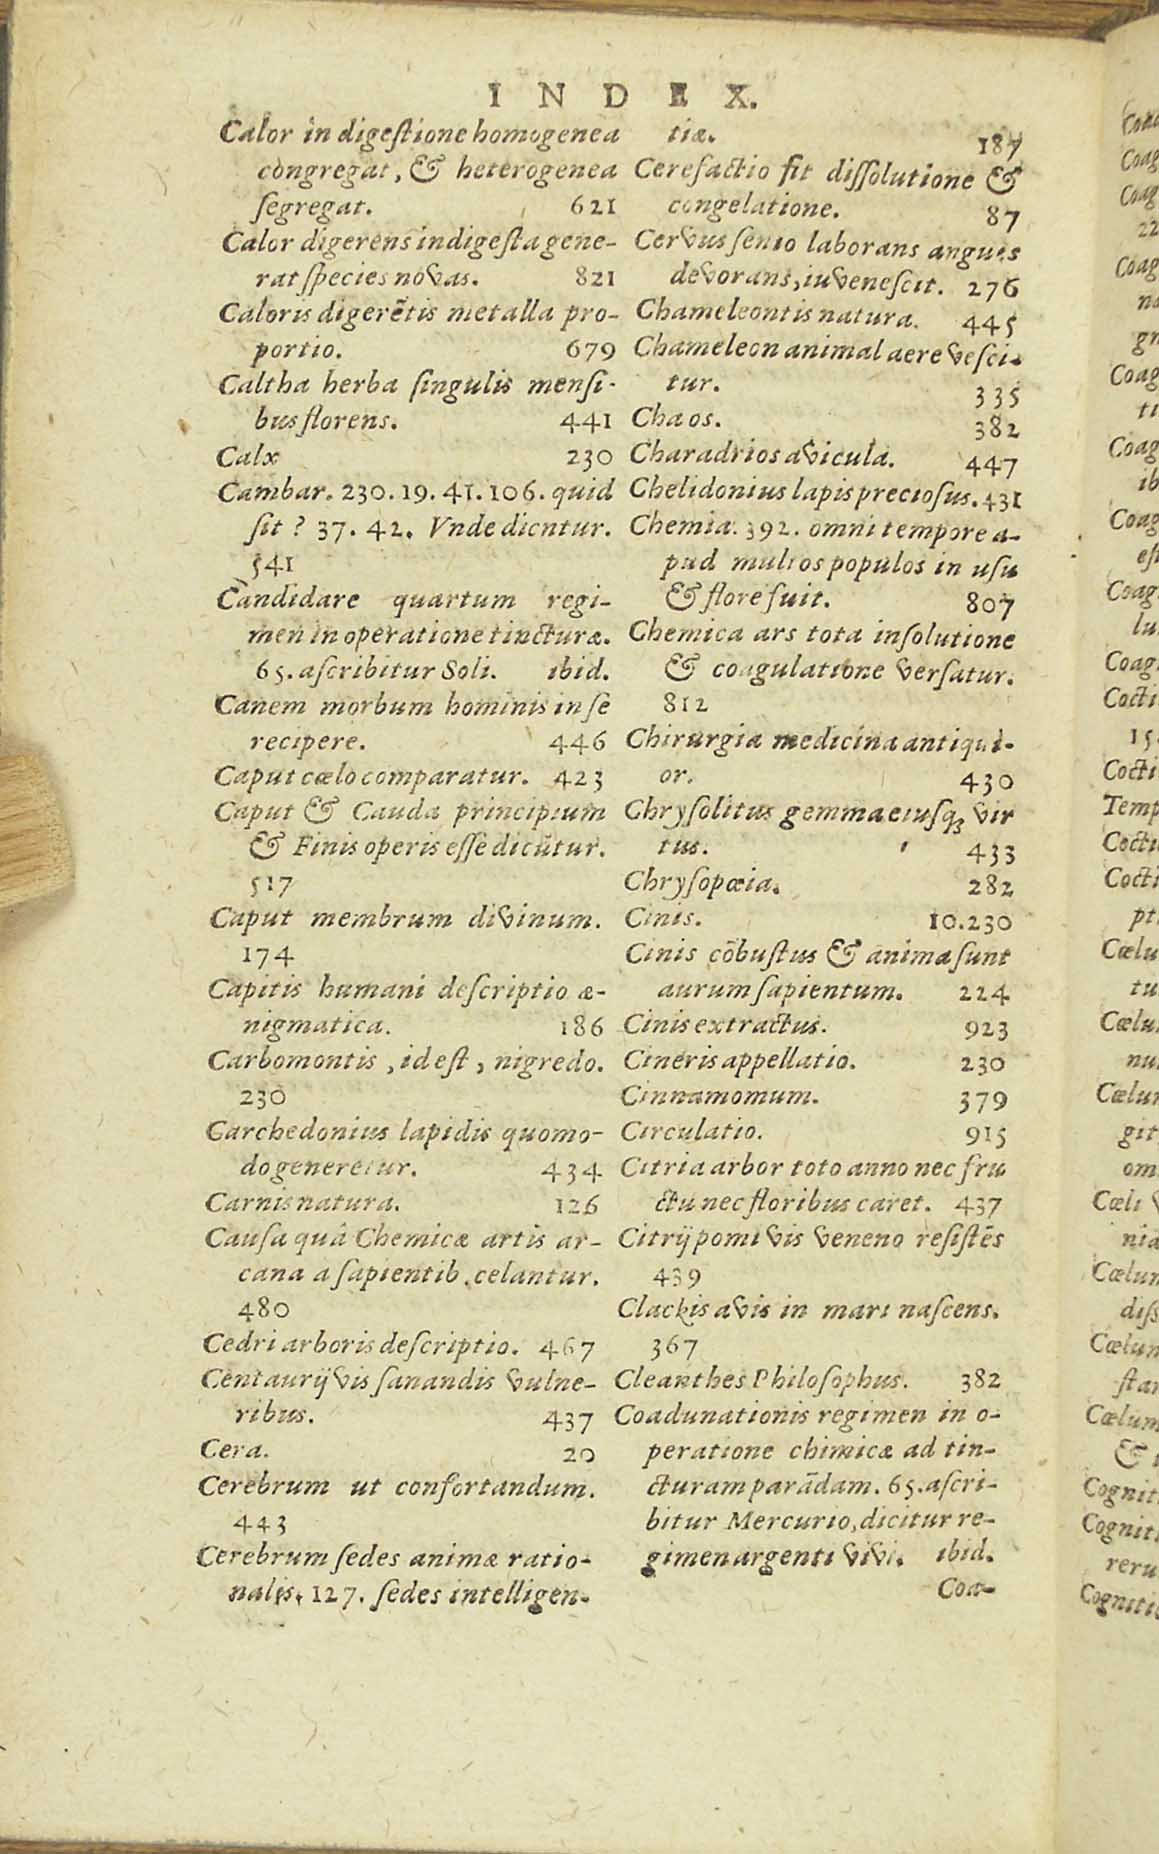 INDEX.
Calor in digeſtione homogenea
congregat, & heterogenea
ſegregat. 621
Calor digerens indigeſta gene-
rat ſpecies novas. 821
Caloris digerẽtis metalla pro-
portio. 679
Caltha herba ſingulis menſi-
bus florens. 441
Calx 230
Cambar. 230. 19. 41. 106. quid
ſit? 37. 42. Vnde dicntur.
541
Candidare quartum regi-
men in operatione tincturæ.
65. aſcribitur Soli. ibid.
Canem morbum hominis in ſe
recipere. 446
Caput cœlo comparatur. 423
Caput & Cauda principium
& Finis operis eſſe dicũtur.
517
Caput membrum divinum.
174
Capitis humani deſcriptio æ-
nigmatica. 186
Carbomontis, id eſt, nigredo.
230
Carchedonius lapidis quomo-
do generetur. 434
Carnis natura. 126
Cauſa quâ Chemicæ artis ar-
cana a ſapientib. celantur.
480
Cedri arboris deſcriptio. 467
Centaurij vis ſanandis vulne-
ribus. 437
Cera. 20
Cerebrum ut confortandum.
443
Cerebrum ſedes animæ ratio-
nalis. 127. ſedes intelligen-
tiæ. 187
Cerefactio fit diſſolutione &
congelatione. 87
Cervus ſenio laborans angues
devorans, iuveneſcit. 276
Chameleontis natura. 445
Chameleon animal aere veſci-
tur. 335
Chaos. 382
Charadrios avicula. 447
Chelidonius lapis precioſus. 431
Chemia. 392. omni tempore a-
pud multos populos in uſu
& flore fuit. 807
Chemica ars tota in ſolutione
& coagulatione verſatur.
812
Chirurgia medicina antiqui-
or. 430
Chryſolitus gemma eiuſq; vir
tus. 433
Chryſopœia. 282
Cinis. 10.230
Cinis cõbuſtus & anima ſunt
aurum ſapientum. 224
Cinis extractus. 923
Cineris appellatio. 230
Cinnamomum. 379
Circulatio. 915
Citria arbor toto anno nec fru
ctu nec floribus caret. 437
Citrij pomi vis veneno reſiſtẽs
439
Clackis avis in mari naſcens.
367
Cleanthes Philoſophus. 382
Coadunationis regimen in o-
peratione chimicæ ad tin-
cturam parãdam. 65. aſcri-
bitur Mercurio, dicitur re-
gimen argenti vivi. ibid.
Coa-